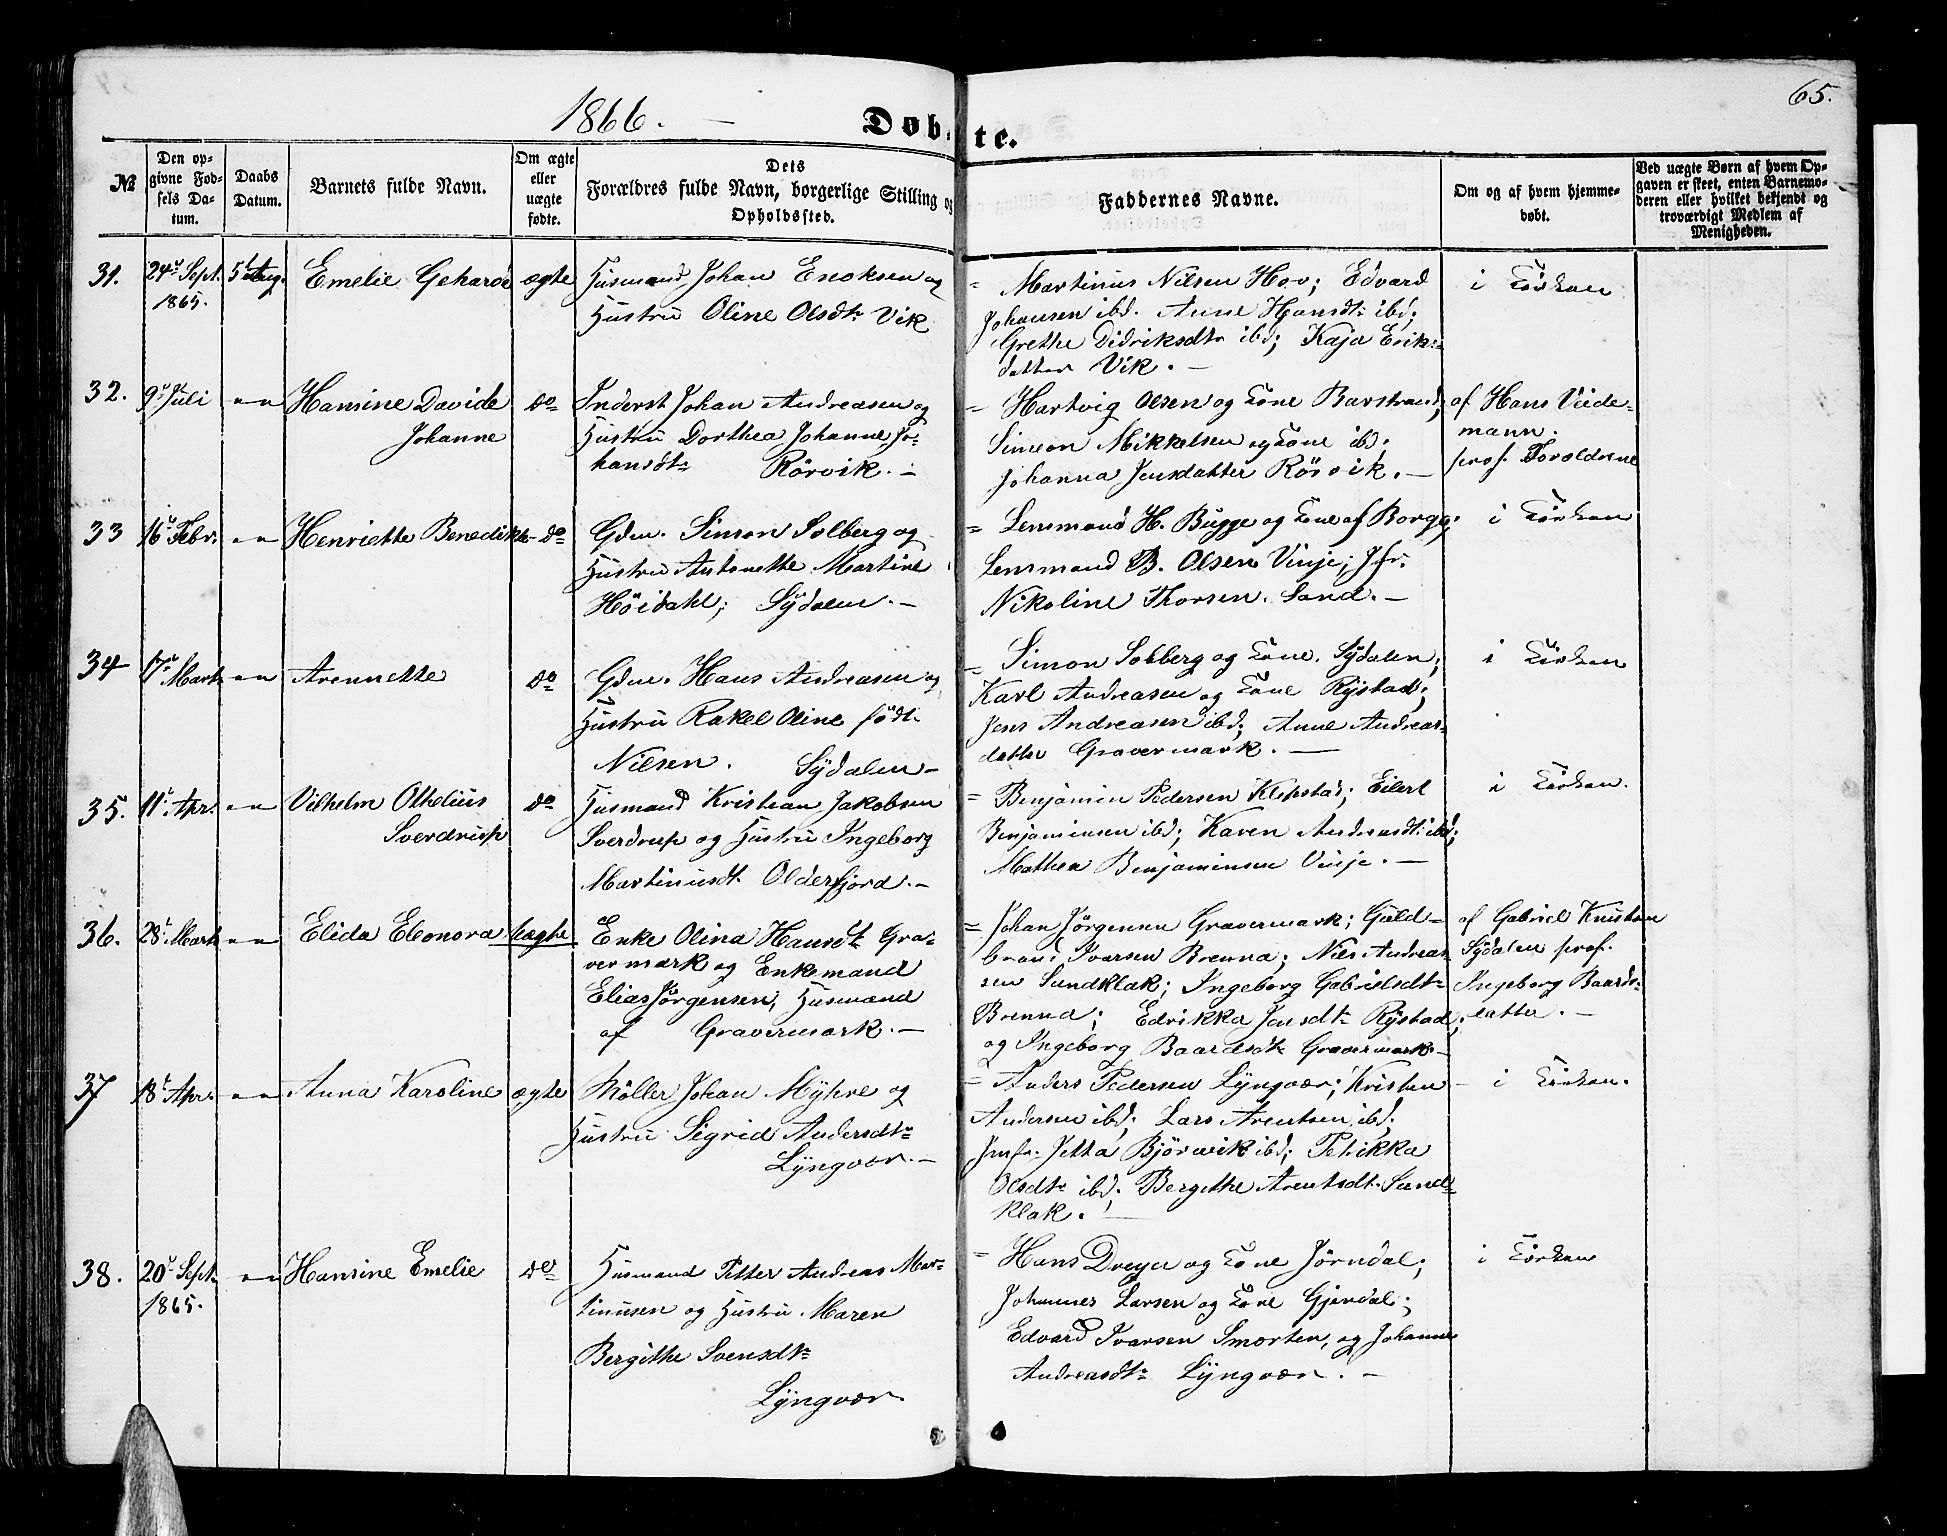 65.
1866. — Døbte.
№
Den opgivne Fødsels Datum.
Daabs Datum.
Barnets fulde Navn.
Om ægte eller uægte fødte.
Dets Forældres fulde Navn, borgerlige Stilling og Opholdssted.
Faddernes Navne.
Om og af hvem hjemmedøbt.
Ved uægte Børn af hvem Opgaven er skeet, enten Barnemoderen eller hvilket bekjendt og troværdigt Medlem af Menigheden.
31. 24de Sept. 1865. 5t Aug. Emelie ægte
Husmand Johan Enoksen og
Hustru Oline Olsdtr Vik
= Martinus Nilsen Hov; Edvard
Johansen ibd. Anne Hansdtr ibd;
Grethe Didriksdtr ibd; Kaja Eriks=
datter Vik. —
i Kirken
32. 9de Juli Hansine Davide
Johanne
do
Inderst Johan Andreasen og
Hustru Dorthea Johanne Jo-
hansdtr Rörvik. —
= Hartvig Olsen og Kone Barstrand;
Simeon Mikkelsen og Kone ibd;
Johanna Jensdatter Rörvik. —
af Hans Vide-
mann.
prof. Foraldrene
33 16de Febr. Henriette Benedikte do
Gdm. Simon Solberg og
Hustru Antonette Martine
Höidahl; Sÿdalen. —
= Lensmand H. Bugge og Kone af Borge;
Lensmand B. Olsen Vinje; Jfr.
Nikoline Thorsen. Sand. —
i Kirken
34 17de Marts Arennette do
Gdm. Hans Andreasen og
Hustru Rakel Oline födt
Nilsen. Sÿdalen —
= Simon Solberg og Kone. Sÿdalen;
Karl Andreasen og Kone Rÿstad;
Jens Andreasen ibd; Anne Andreas-
datter Gravermark. —
i Kirken
35. 11te Apr. Vilhelm Othelius
Sverdrup
do
Husmand Kristian Jakobsen
Sverdrup og Hustru Ingeborg
Martinusdt. Olderfjord. —
= Benjamin Pedersen Klepstad; Eilert
Benjaminsen ibd; Karen Andreasdt. ibd;
Mathea Benjaminsen Vinje. —
i Kirken.
36. 28de Marts Elida Eleonora uægte
Enke Olina Hansdtr Gra-
vermark og Enkemand
Elias Jørgensen, Husmand
af Gravermark. —
= Johan Jørgensen Gravermark; Guld=
brand Ivarsen Brenna; Nils Andreas-
sen Sundklak; Ingeborg Gabrielsdtr
Brenna; Edrikka Jensdtr Rÿstad;
og Ingeborg Baardsdtr Gravermark —
af Gabriel Kristian
Sÿdalen prof.
Ingeborg Baards-
datter. —
37 18de Apr. Anna Karoline ægte
Möller Johan Mÿhre og
Hustru Sigrid Andersdtr
Lÿngvær. —
= Anders Pedersen Lÿngvær; Kristen
Andersen ibd; Lars Arentsen ibd;
Jmfr. Jetta Björnvik ibd; Petrikka
Olsdtr ibd; Bergithe Arentsdt. Sund-
klak. —
i Kirken.
38. 20de Sept. 1865. Hansine Emelie do
Husmand Petter Andreas Mar-
tinusen og Hustru Maren
Bergithe Svensdtr
Lÿngvær.
= Hans Dreyer og Kone Jörndal;
Johannes Larsen og Kone Gjerdal;
Edvard Ivarsen Smorten, og Johanne
Andreasdtr Lÿngvær. —
i Kirken